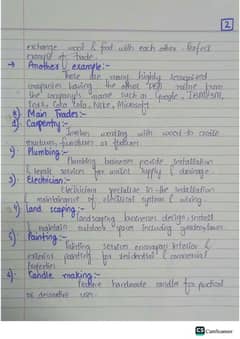 2
exchange wool & food with each other. Perfect
example of trade.
→ Another example:-
There are many highly recognised
companies having the other value from
the company's name such as Google,
Tesla, Coca Cola, Nike, Microsoft
B) Main Trades:-
1) Carpentry:-
Involves working with wood to create
structures, furnitures or fixtures
2) Plumbing:-
Plumbing businesses provide installation
& repair services for water supply & drainage.
3) Electrician:-
Electricians specialize in the installation
& maintenance of electrical system & wiring.
4) Land scaping:-
Landscaping businesses design, install
& maintain outdoor spaces including gardens, lawn.
5) Painting:-
Painting services encompass interior &
exterior painting for residential & commercial
properties
6) Candle making:-
Feature handmade candles for practical
or decorative uses.
CS CamScanner